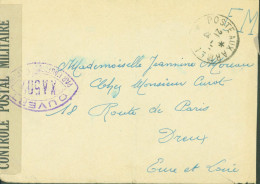 CONTROLE POSTAL MILITAIRE
OUVERT
POSTE AUX ARMEES
F M
Mademoiselle Jeannine Moreau
Chez Monsieur
18 Route de Paris
Dreux
Eure et Loire